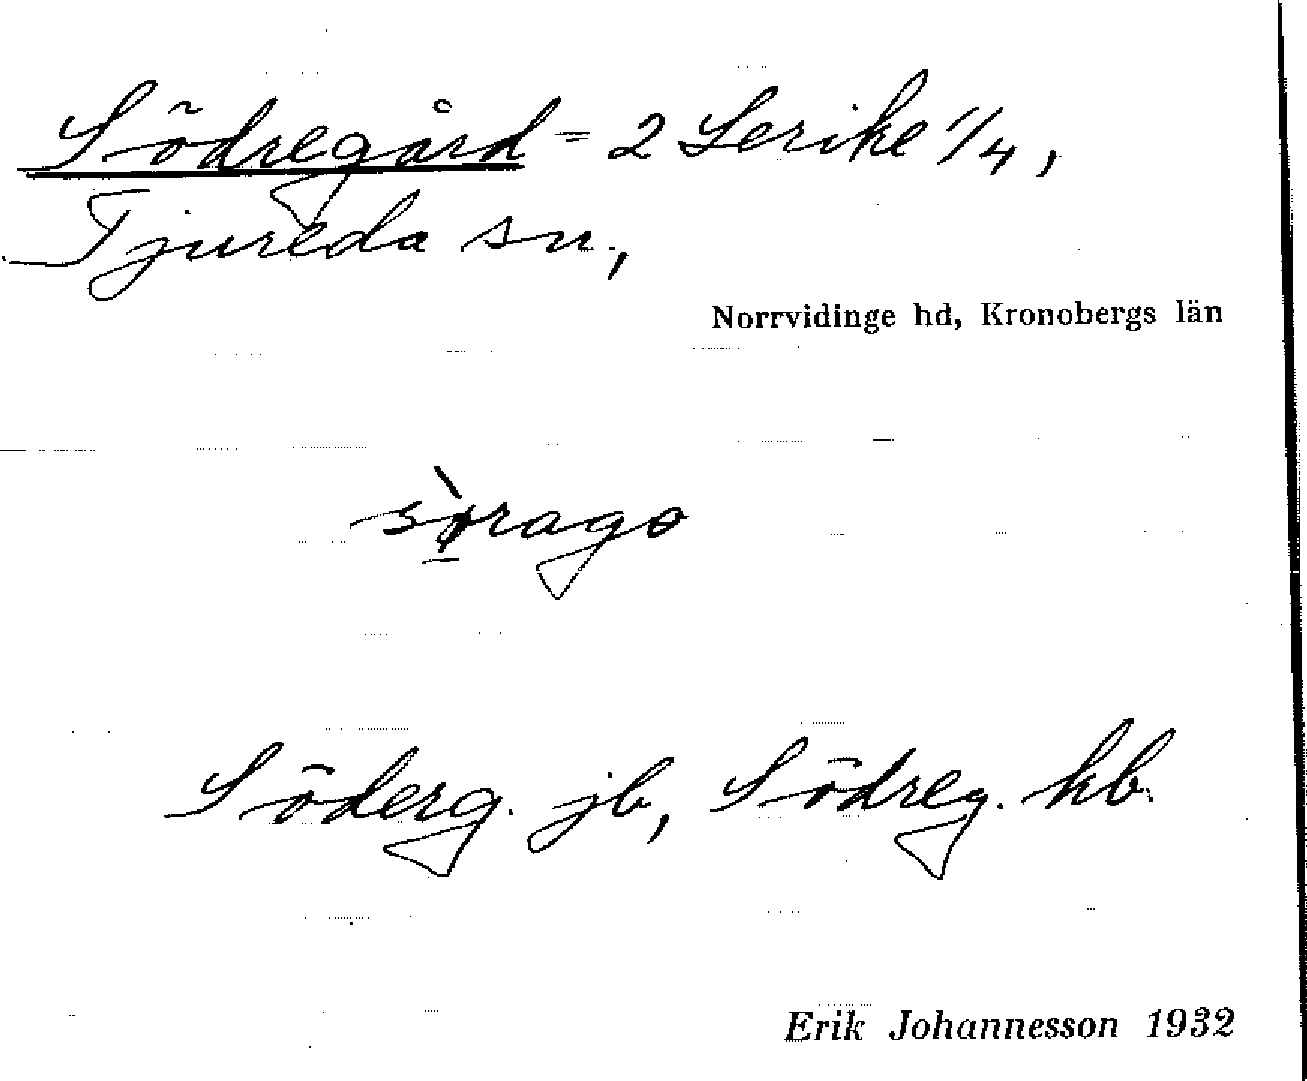 Södregård = 2 Lerike 1/4,
Tjureda sn,
Norrvidinge hd, Kronobergs län
sø̀rago
Söderg. jb, Södreg. hb.
Erik Johannesson 1932